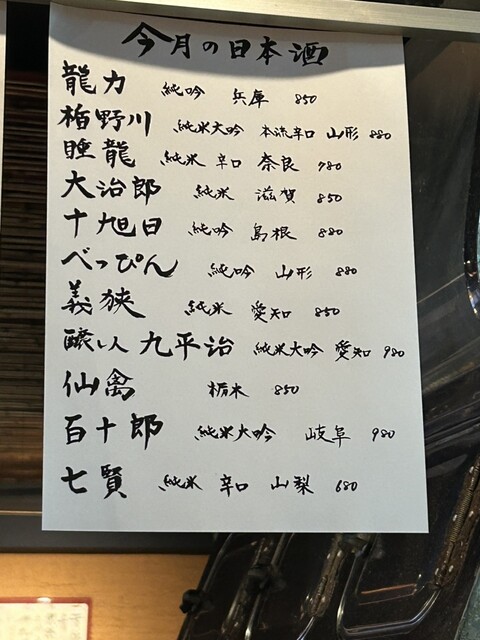 今月の日本酒
龍力 純吟 兵庫 850
楯野川 純米大吟 本流辛口 山形 880
睡龍 純米 辛口 奈良 780
大治郎 純米 滋賀 850
十旭日 純吟 島根 880
べっぴん 純吟 山形 880
義狭 純米 愛知 850
醸し人 九平治 純米大吟 愛知 980
仙禽 栃木 850
百十郎 純米大吟 岐阜 980
七賢 純米 辛口 山梨 680